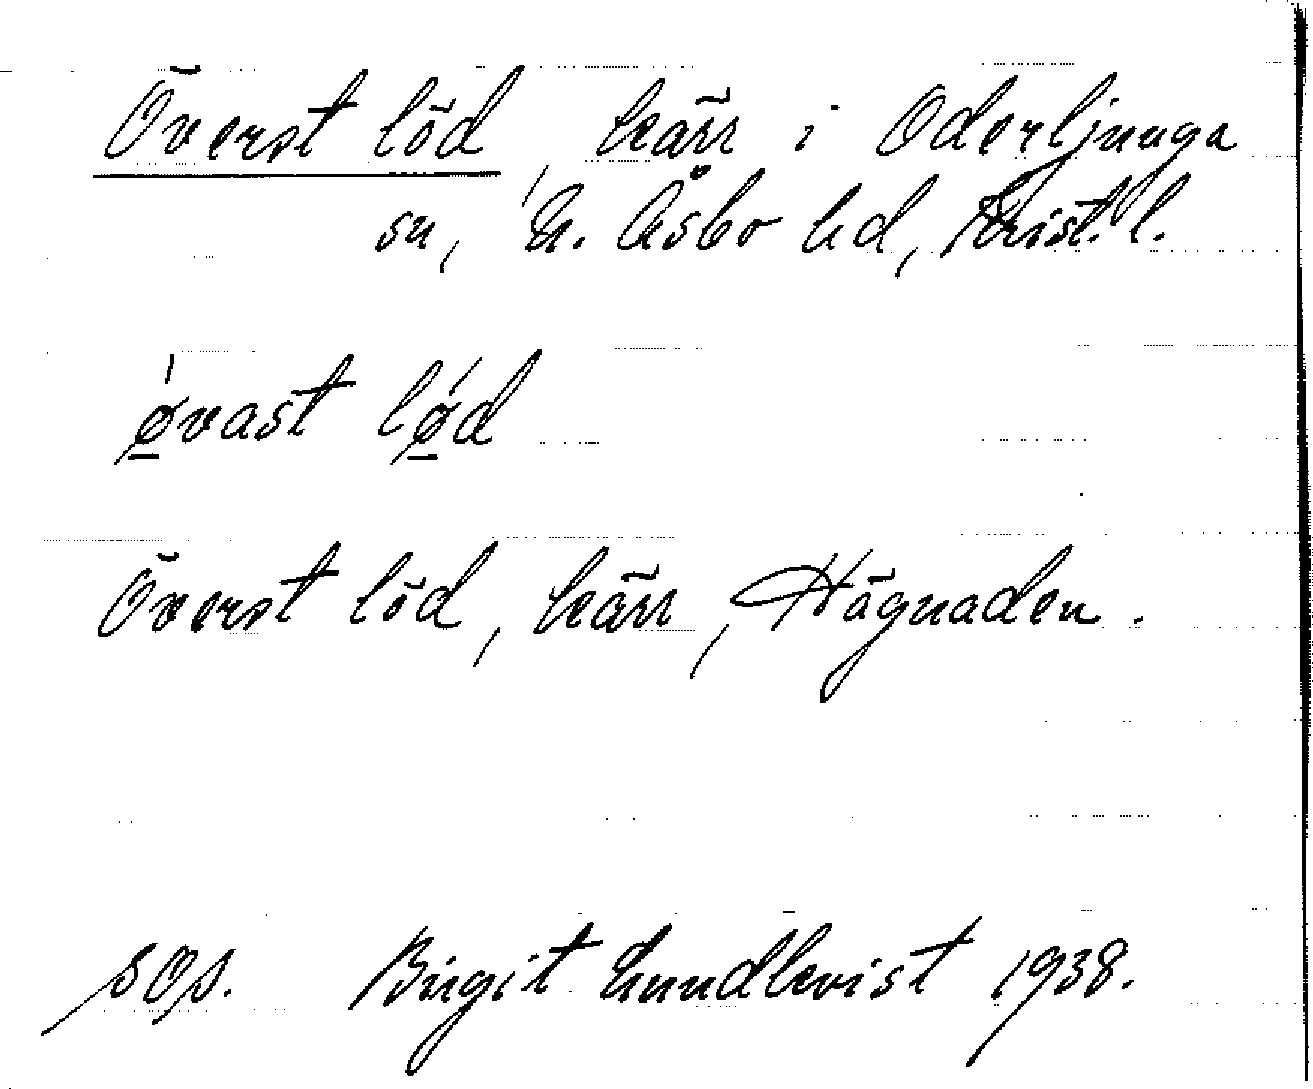 Överst löd, kärr i Oderljunga
sn, N. Åsbo hd, Krist. l.
ǿ̱vast lǿ̱d
Överst löd, kärr, Hägnaden.
sos. Birgit Lundkvist 1938.